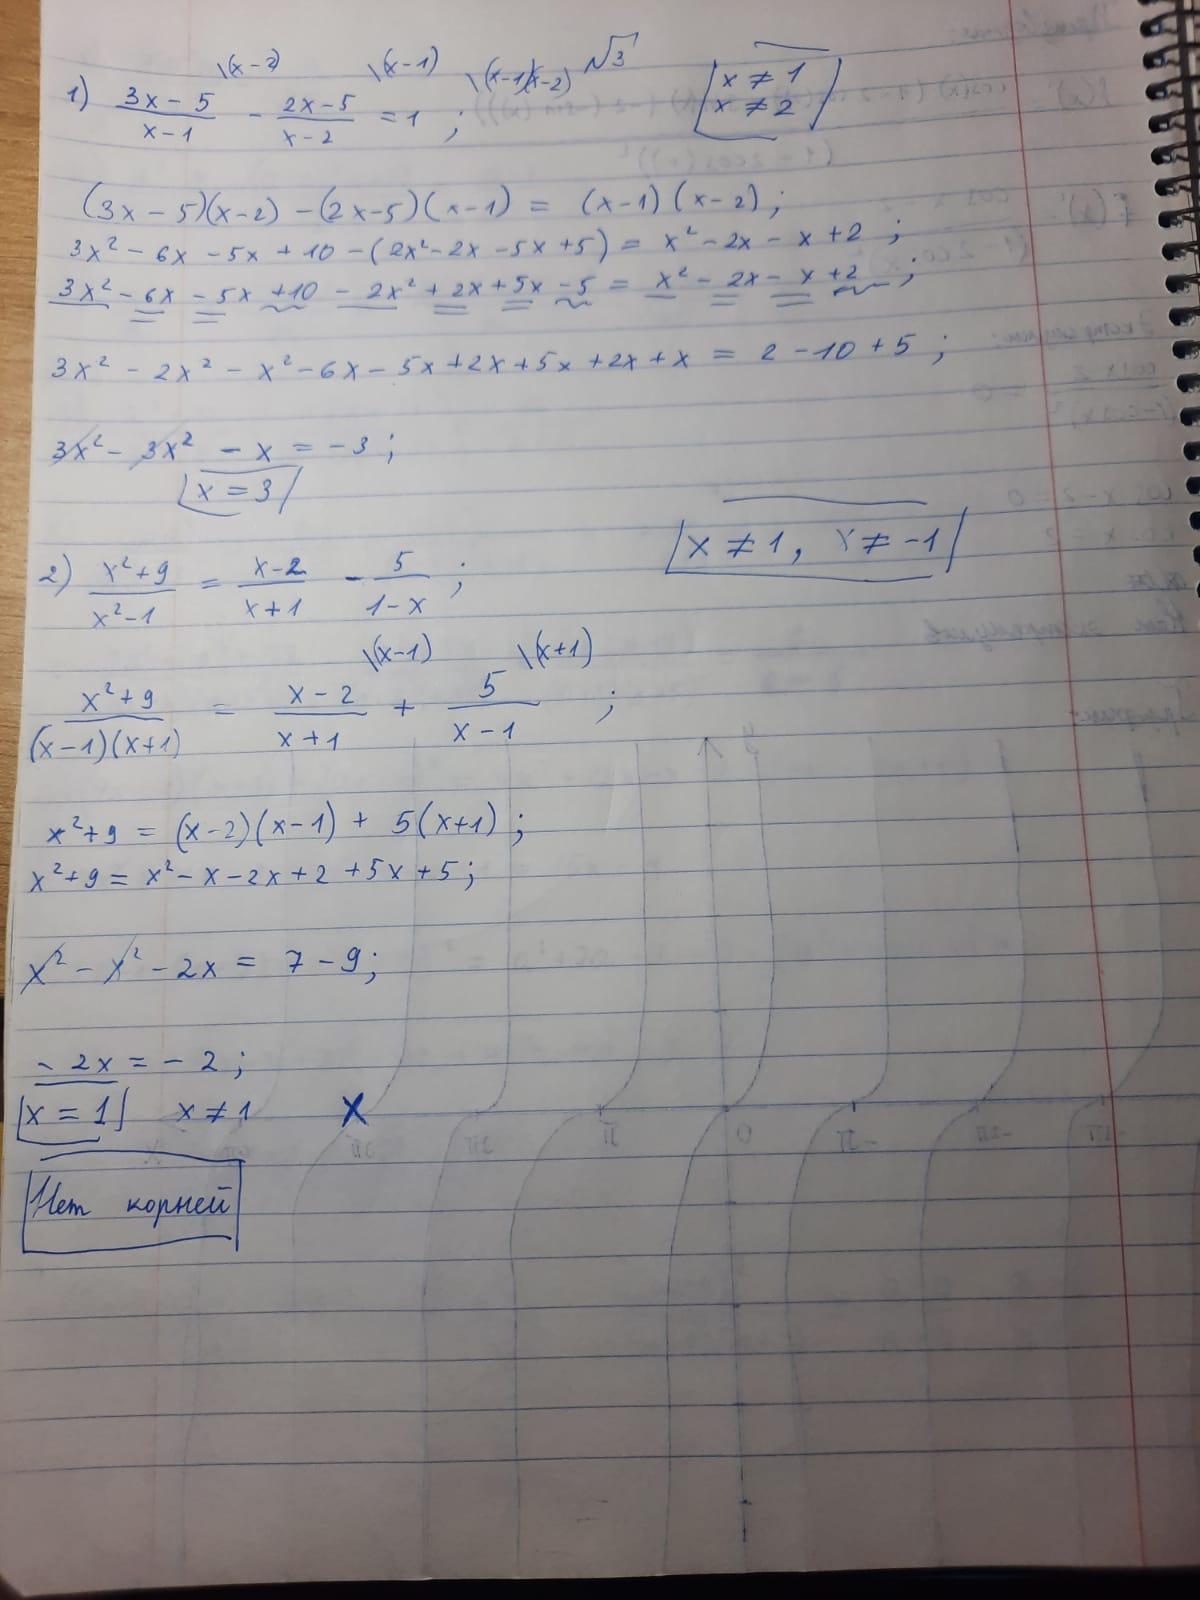 \(x-2) \(x-1) \(x-1)(x-2) √3
1) (3x-5)/(x-1) - (2x-5)/(x-2) = 1 ; x ≠ 1
x ≠ 2
(3x-5)(x-2) - (2x-5)(x-1) = (x-1)(x-2);
3x² - 6x - 5x + 10 - (2x² - 2x - 5x + 5) = x² - 2x - x + 2 ;
3x² - 6x - 5x + 10 - 2x² + 2x + 5x - 5 = x² - 2x - x + 2 ;
3x² - 2x² - x² - 6x - 5x + 2x + 5x + 2x + x = 2 - 10 + 5 ;
3x² - 3x² - x = -3 ;
x = 3
x ≠ 1, x ≠ -1
2) (x²+9)/(x²-1) = (x-2)/(x+1) - 5/(1-x) ;
\(x-1) \(x+1)
(x²+9)/((x-1)(x+1)) = (x-2)/(x+1) + 5/(x-1) ;
x²+9 = (x-2)(x-1) + 5(x+1) ;
x²+9 = x² - x - 2x + 2 + 5x + 5 ;
x² - x² - 2x = 7 - 9 ;
- 2x = - 2 ;
x = 1 x ≠ 1 X
Нет корней